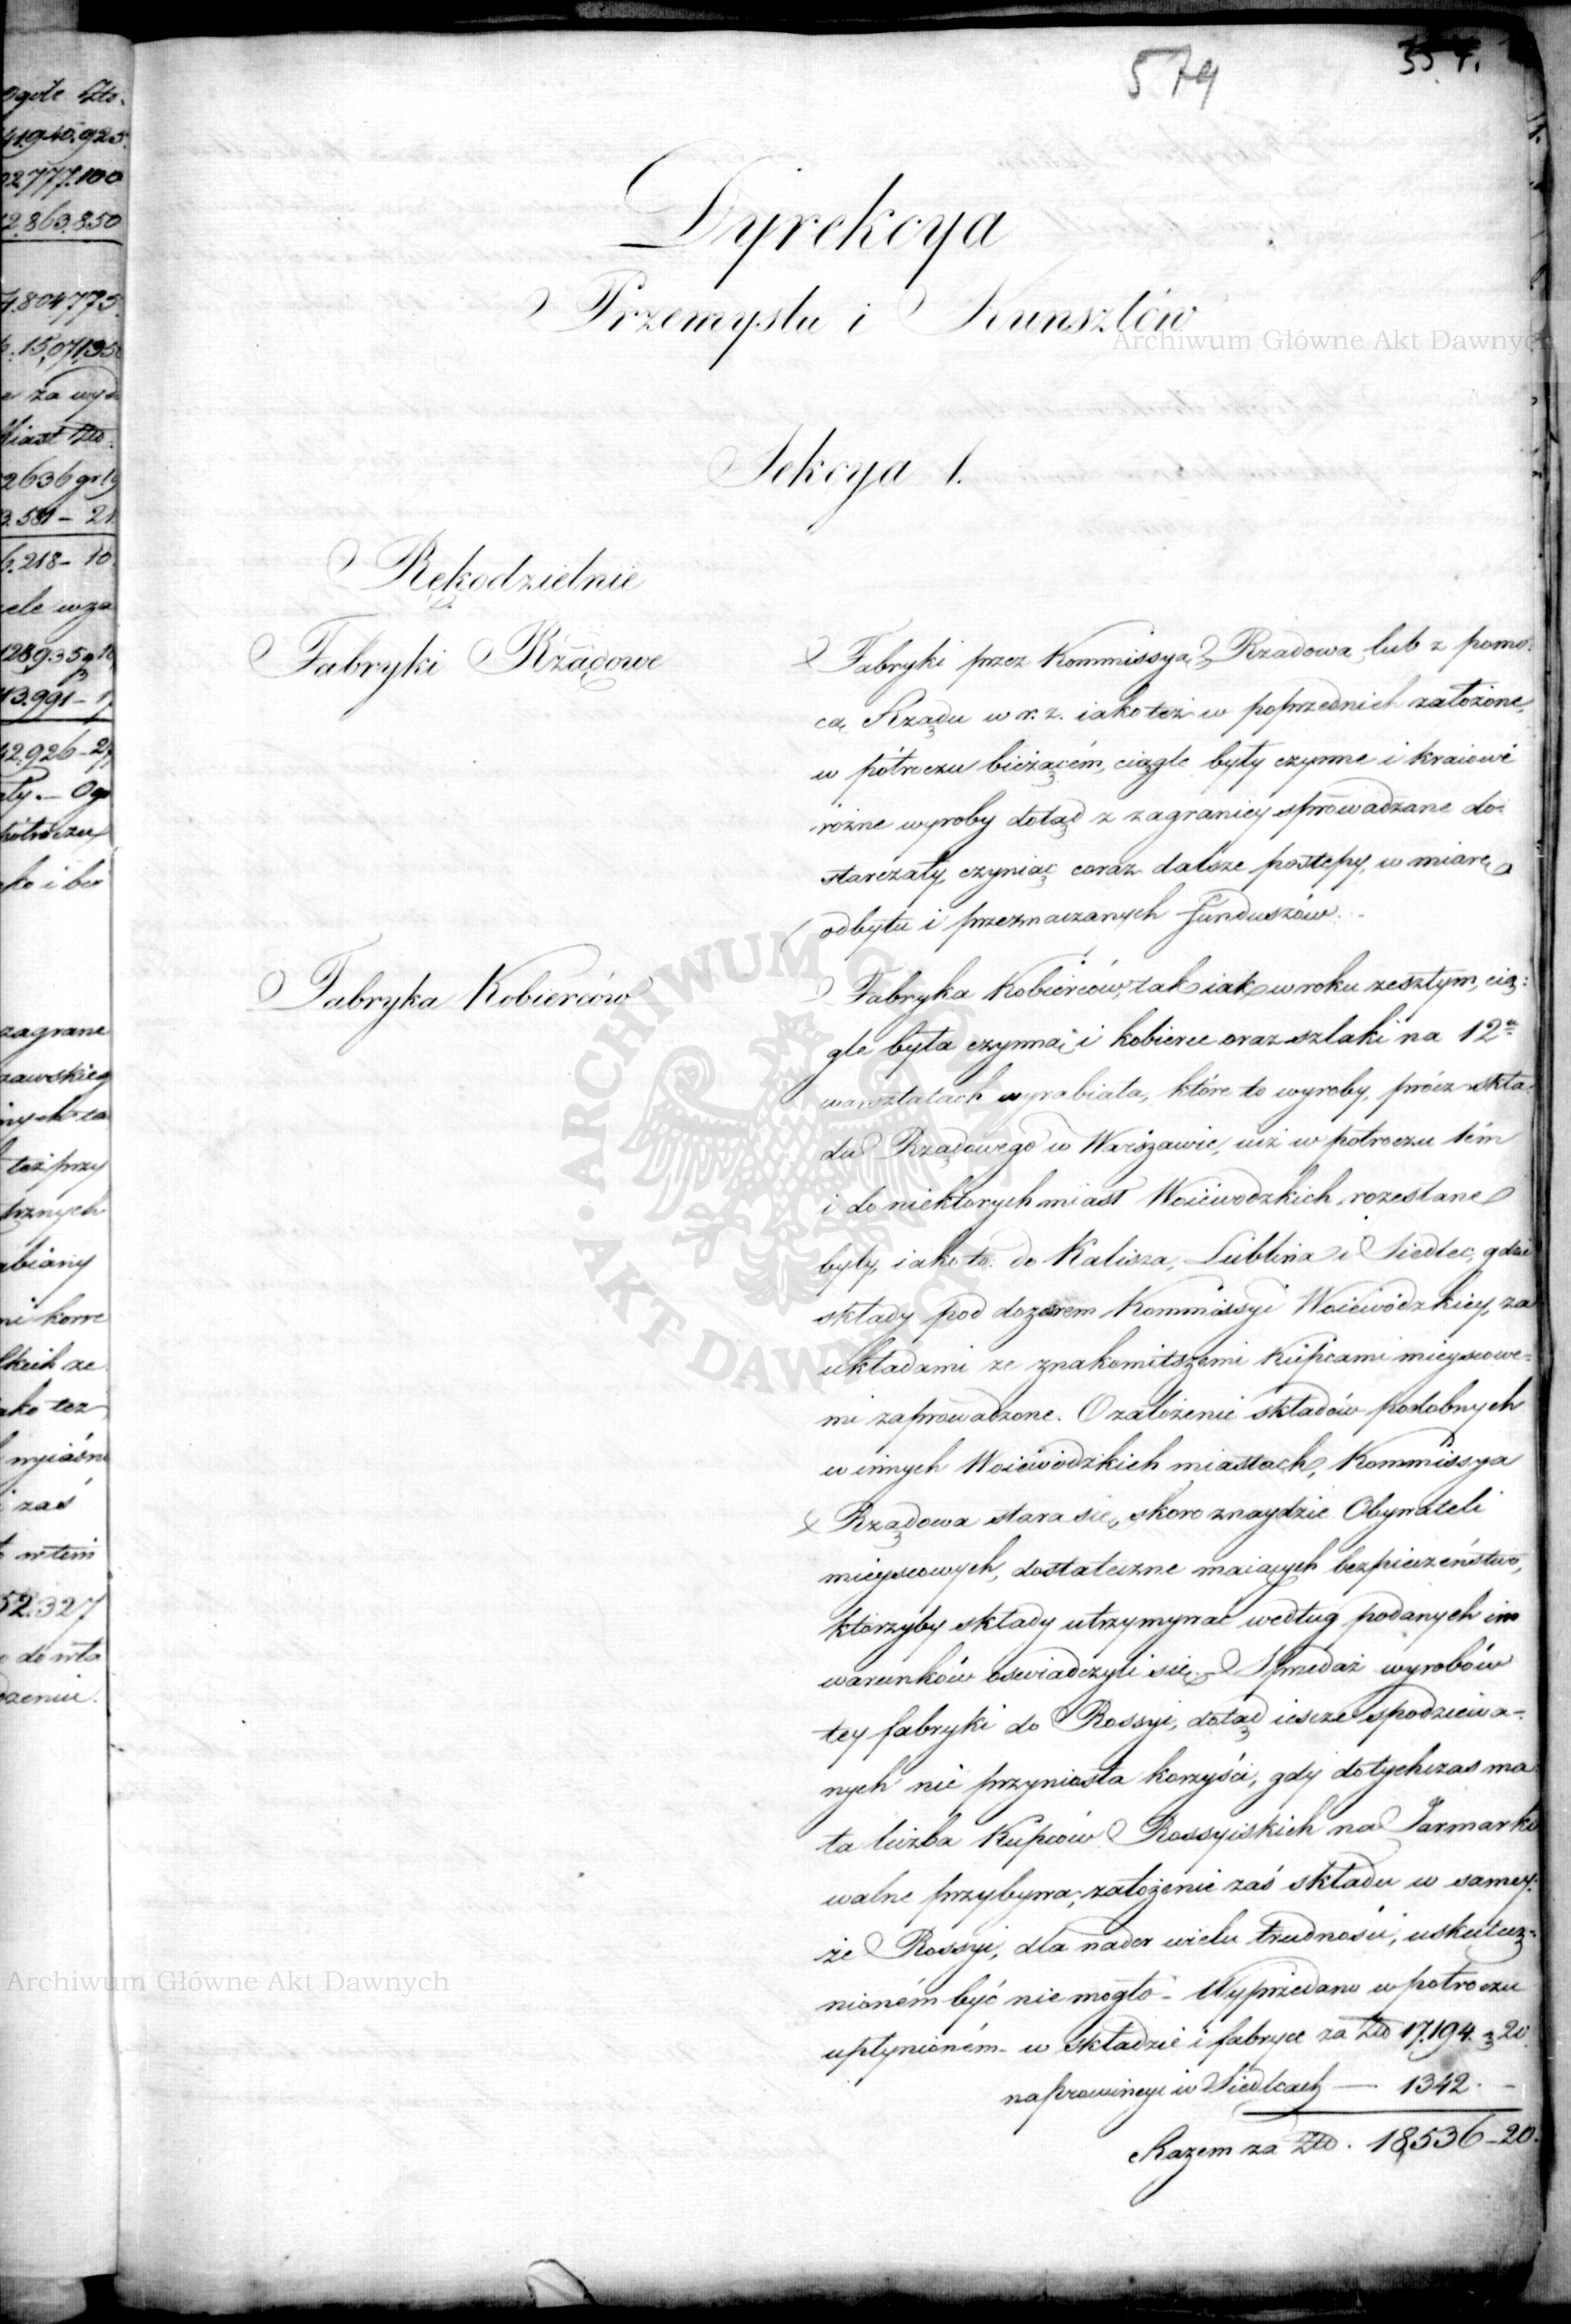 579
Dyrekcya
Przemysłu i Kunsztów
Sekcya 1.
Rękodzielnie
Fabryki Rządowe
Fabryki przez Kommissyą Rządową lub z pomo-
cą Rządu w r. z. iako też w poprzednich założone,
w półroczu bieżącém, ciągle były czynne i kraiowé
różne wyroby dotąd z zagranicy sprowadzane do-
starczały, czyniąc coraz dalsze postępy, w miarę
odbytu i przeznaczanych funduszów.
Fabryka Kobierców
Fabryka Kobierców, tak iak w roku zeszłym, cią:
gle była czynną, i kobierce oraz szlaki na 12u
warsztatach wyrabiała, które to wyroby, prócz skła-
du Rządowego w Warszawie, iuż w półroczu tém
i do niektórych miast Woiewodzkich rozesłane
były, iako to: do Kalisza, Lublina i Siedlec, gdzie
składy pod dozorem Kommissyi Woiewódzkiey, za
układami ze znakomitszemi Kupcami mieyscowe-
mi zaprowadzone. O założenie składów podobnych
w innych Woiewódzkich miastach, Kommissya
Rządowa stara się, skoro znaydzie Obywateli
mieyscowych, dostateczne maiących bezpieczeństwo,
którzyby składy utrzymywać według podanych im
warunków oświadczyli się. Sprzedaż wyrobów
tey fabryki do Rossyi, dotąd iescze spodziewa-
nych nie przyniosła korzyści, gdy dotychczas ma-
ła liczba Kupców Rossyiskich na Jarmarki
walne przybywa; założenie zaś składu w samey-
że Rossyi, dla nader wielu trudności, uskutecz-
nioném być nie mogło - Wyprzedano w półroczu
upłynioném - w składzie i fabryce za Złp 17.194. g 20.
na prowincyi w Siedlcach — 1342. -
Razem za Złp. 18,536 - 20.
Archiwum Główne Akt Dawnych
Archiwum Główne Akt Dawnych
ARCHIWUM GŁÓWNE AKT DAWNYCH